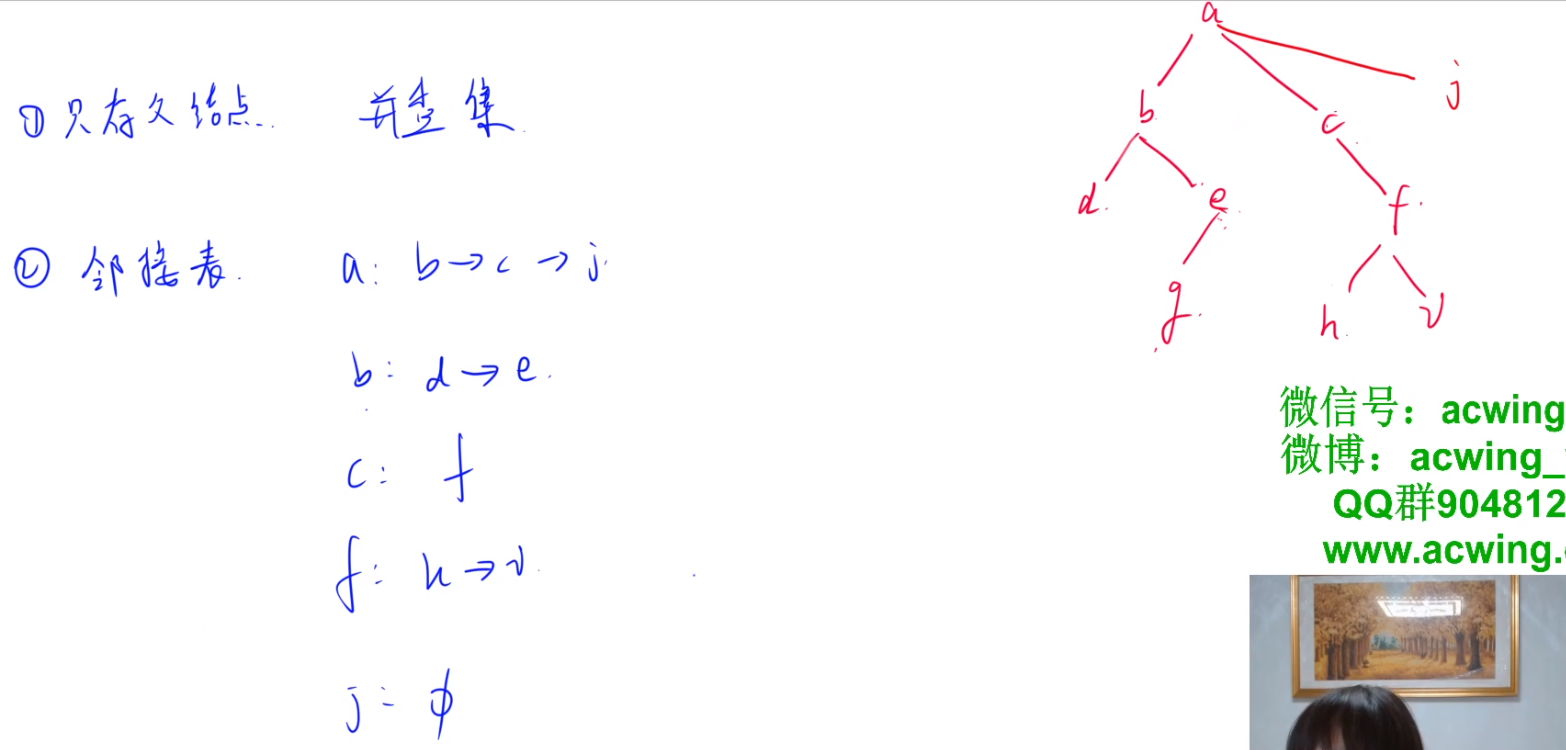 ① 只存父结点. 并查集
② 邻接表. a: b→c→j
b: d→e.
c: f
f: h→v
j: φ
a
b c j
d. e f.
g. h. v
微信号：acwing
微博：acwing_
QQ群904812
www.acwing.